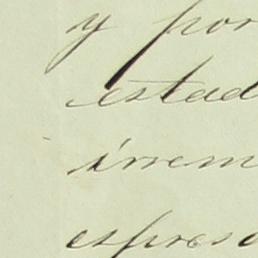 y por
estad
irrem
espres